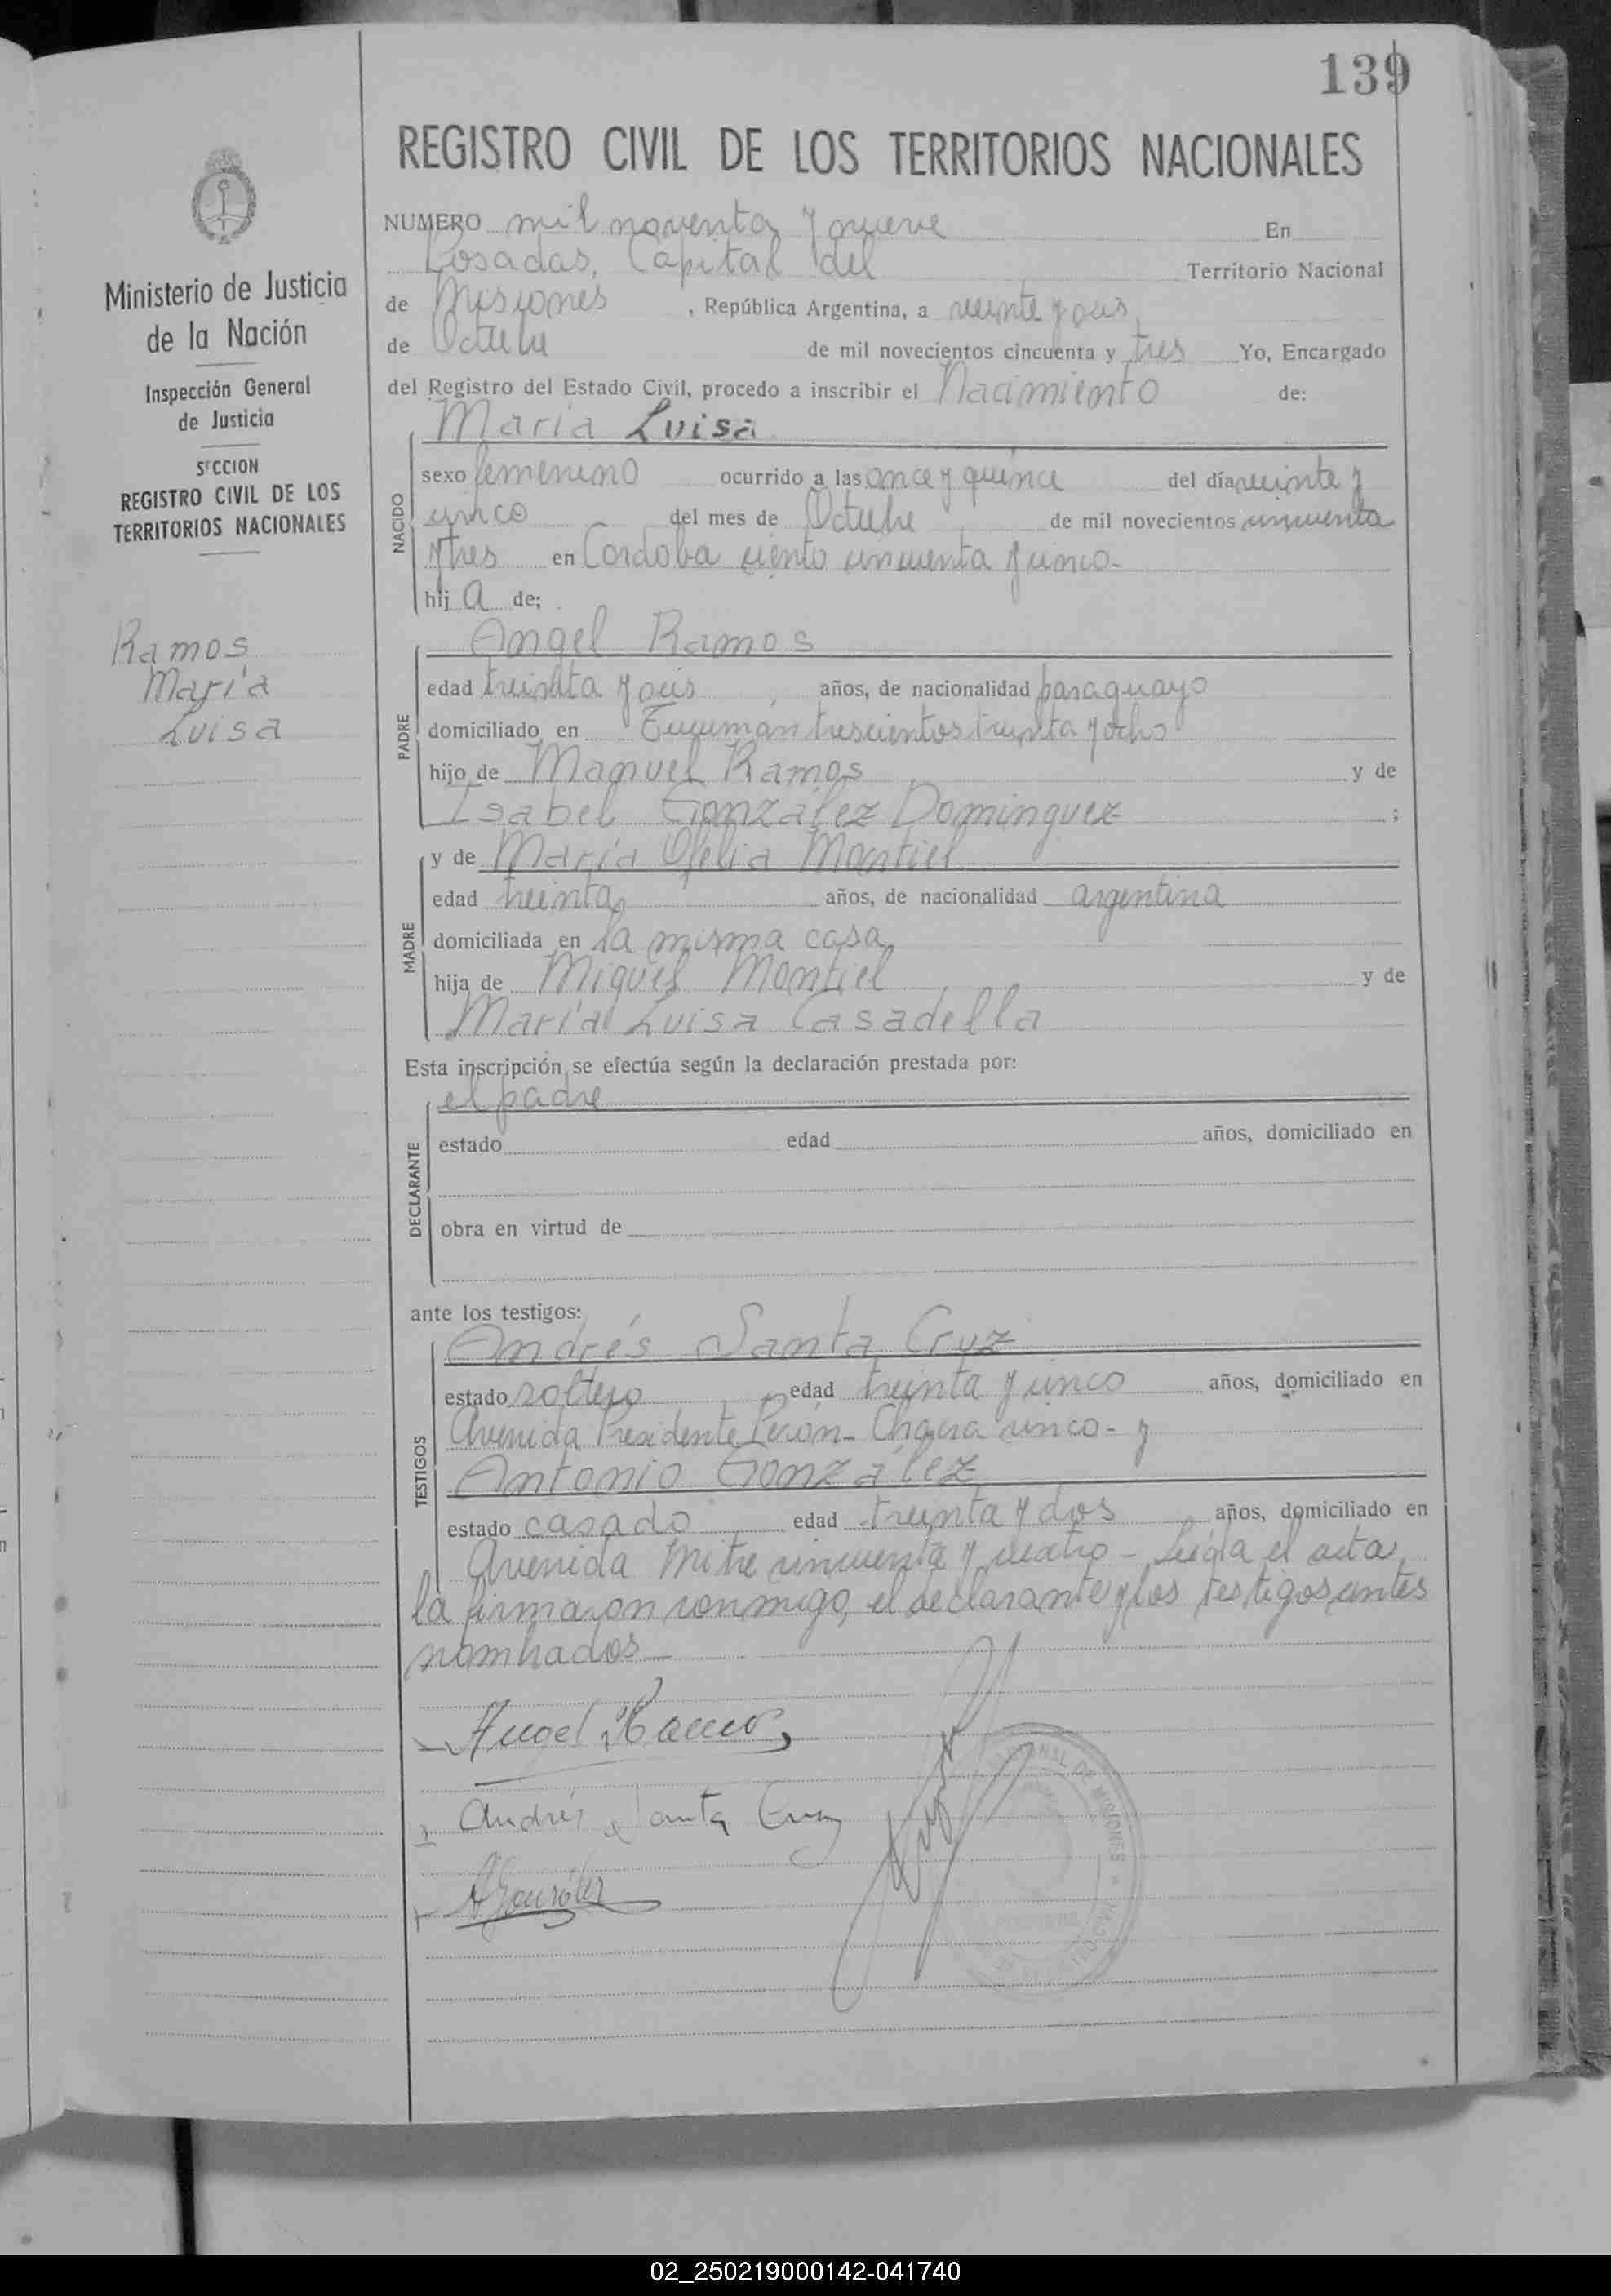 139
REGISTRO CIVIL DE LOS TERRITORIOS NACIONALES
NUMERO mil noventa y nueve En
Posadas, Capital del Territorio Nacional
de Misiones, República Argentina, a veinte y seis
de Octubre de mil novecientos cincuenta y tres Yo, Encargado
del Registro del Estado Civil, procedo a inscribir el Nacimiento de:
Ministerio de Justicia
de la Nación
Inspección General
de Justicia
SECCION
REGISTRO CIVIL DE LOS
TERRITORIOS NACIONALES
Ramos
María
Luisa
NACIDO
María Luisa
sexo femenino ocurrido a las once y quince del día veinte y
cinco del mes de Octubre de mil novecientos cincuenta
y tres en Cordoba ciento cincuenta y cinco-
hij a de;
PADRE
Angel Ramos
edad treinta y seis años, de nacionalidad paraguayo
domiciliado en Tucumán trescientos treinta y ocho
hijo de Manuel Ramos y de
Isabel González Dominguez ;
MADRE
y de María Ofelia Montiel
edad treinta años, de nacionalidad argentina
domiciliada en la misma casa,
hija de Miguel Montiel y de
María Luisa Casadella
Esta inscripción se efectúa según la declaración prestada por:
DECLARANTE
el padre
estado edad años, domiciliado en
obra en virtud de
ante los testigos:
TESTIGOS
Andrés Santa Cruz
estado soltero edad treinta y cinco años, domiciliado en
Avenida Presidente Perón- Chacra cinco- y
Antonio González
estado casado edad treinta y dos años, domiciliado en
Avenida Mitre cincuenta y cuatro - Leida el acta,
la firmaron conmigo, el declarante y los testigos antes
nombrados-
Angel Ramos
Andrés Santa Cruz
AGonzález
02_250219000142-041740